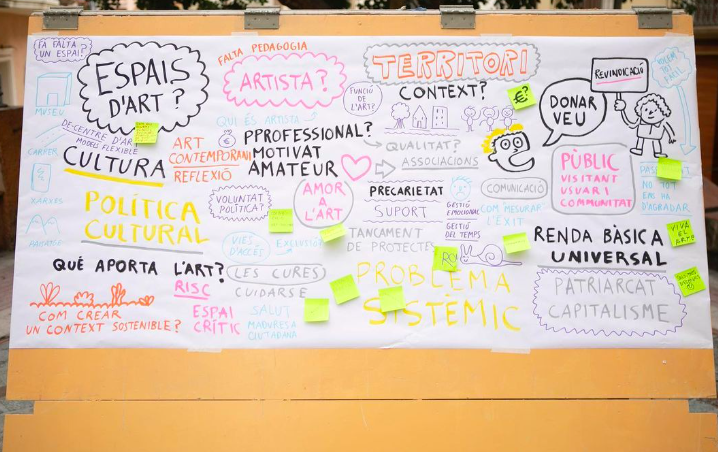 FA FALTA
UN ESPAI?
ESPAIS
D'ART?
MUSEU
DESCENTRE D'ART
MODEL FLEXIBLE
CARRER
XARXES
CULTURA
POLÍTICA
CULTURAL
QUÈ APORTA L'ART?
RISC
COM CREAR
UN CONTEXT SOSTENIBLE?
ESPAI
CRÍTIC
FALTA PEDAGOGIA
ARTISTA?
QUI ÉS ARTISTA
ART
CONTEMPORANI
REFLEXIÓ
PPROFESSIONAL?
MOTIVAT
AMATEUR
FUNCIÓ
DE
L'ART?
VOLUNTAT
POLÍTICA?
AMOR
A
L'ART
VIES
D'ACCÉS
LES CURES
CUIDARSE
SALUT
CIUTADANA
TERRITORI
CONTEXT?
QUALITAT?
ASSOCIACIONS
PRECARIETAT
SUPORT
TANCAMENT
DE PROJECTES
GESTIÓ
EMOCIONAL
GESTIÓ
DEL TEMPS
PROBLEMA
SISTÈMIC
€?
COMUNICACIÓ
COM MESURAR
L'ÈXIT
DONAR
VEU
REVINDICACIÓ
PÚBLIC
VISITANT
USUARI
COMUNITAT
NO TOT
ENS HA
D'AGRADAR
VIVA
EL
ART!
RENDA BÀSICA
UNIVERSAL
PATRIARCAT
CAPITALISME